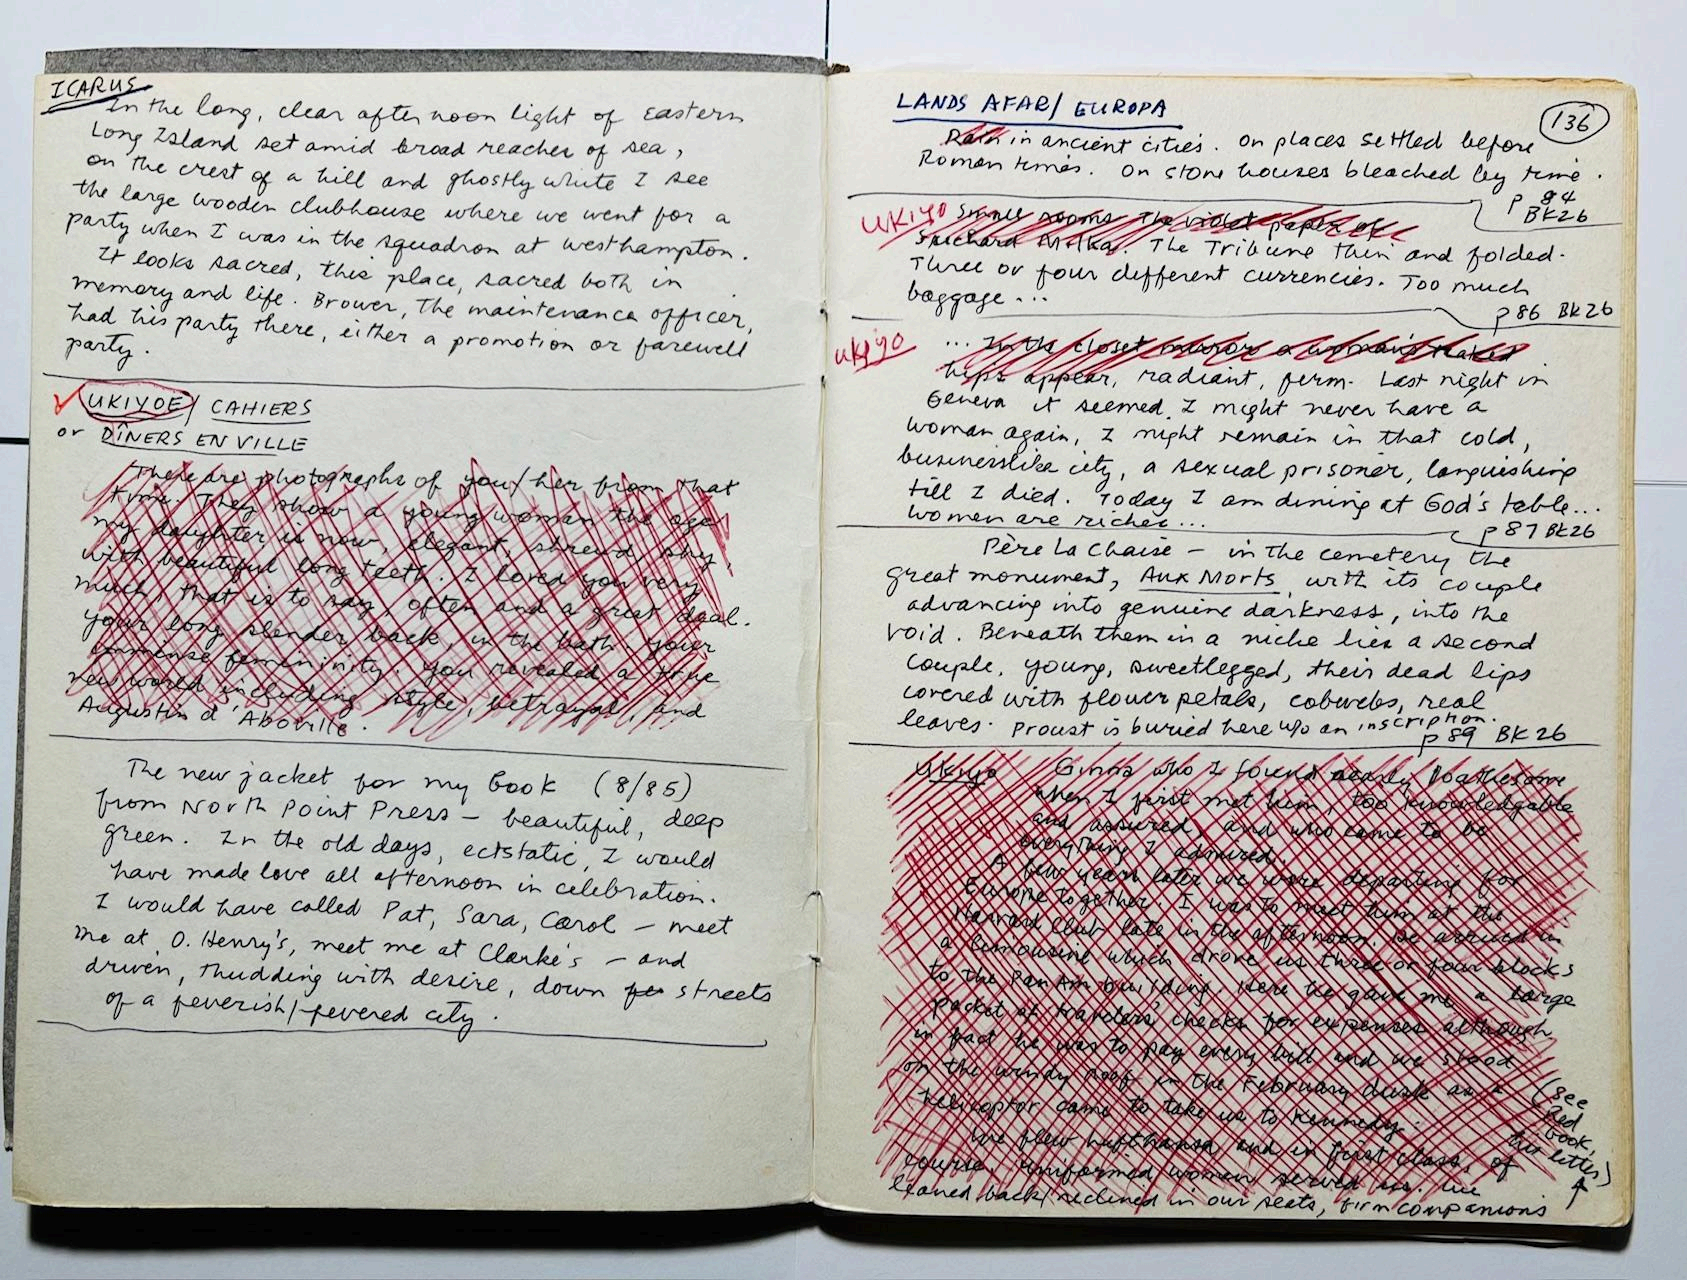 ICARUS
In the long, clear afternoon light of Eastern
Long Island set amid broad reaches of sea,
on the crest of a hill and ghostly white I see
the large wooden clubhouse where we went for a
party when I was in the squadron at Westhampton.
It looks sacred, this place, sacred both in
memory and life. Brower, the maintenance officer,
had his party there, either a promotion or farewell
party.
UKIYOE/ CAHIERS
or DÎNERS EN VILLE
There are photographs of you/her from that
time. They show a young woman the age
my daughter is now, elegant, shrewd, shy,
with beautiful long teeth. I loved you very
much, that is to say, often and a great deal.
your long slender back, in the bath. your
immense femininity. You revealed a true
new world including style, betrayal, and
Augustin d'Aboville.
The new jacket for my book (8/85)
from North Point Press — beautiful, deep
green. In the old days, ectstatic, I would
have made love all afternoon in celebration.
I would have called Pat, Sara, Carol — meet
me at O. Henry's, meet me at Clarke's — and
driven, thudding with desire, down fe streets
of a feverish/fevered city.
LANDS AFAR/ EUROPA
136
Rain in ancient cities. On places settled before
Roman times. On stone houses bleached by time.
p 84
BK26
UKIYO Small rooms. The violet paper of
Suchard Milka. The Tribune thin and folded.
Three or four different currencies. Too much
baggage...
p86 BK26
ukiyo
... In the closet mirror a woman's naked
hips appear, radiant, firm. Last night in
Geneva it seemed I might never have a
woman again, I might remain in that cold,
businesslike city, a sexual prisoner, languishing
till I died. Today I am dining at God's table...
women are riches...
p87 BK26
Père La Chaise — in the cemetery the
great monument, Aux Morts, with its couple
advancing into genuine darkness, into the
void. Beneath them in a niche lies a second
couple, young, sweetlegged, their dead lips
covered with flower petals, cobwebs, real
leaves. Proust is buried here w/o an inscription.
p89 BK26
Ukiyo Ginna who I found nearly loathesome
when I first met him, too knowledgable
and assured, and who came to be
everything I admired.
A few years later we were departing for
Europe together. I was to meet him at the
Harvard Club late in the afternoon. He arrived in
a limousine which drove us three or four blocks
to the Pan Am building. Here he gave me a large
packet of travelers' checks for expenses although
in fact he was to pay every bill and we stood
on the windy roof in the February dusk as a
helicoptor came to take us to Kennedy.
We flew Lufthansa and in first class, of
course. Uniformed women served us. We
leaned back/reclined in our seats, firm companions
(see
Red
book,
his letter)